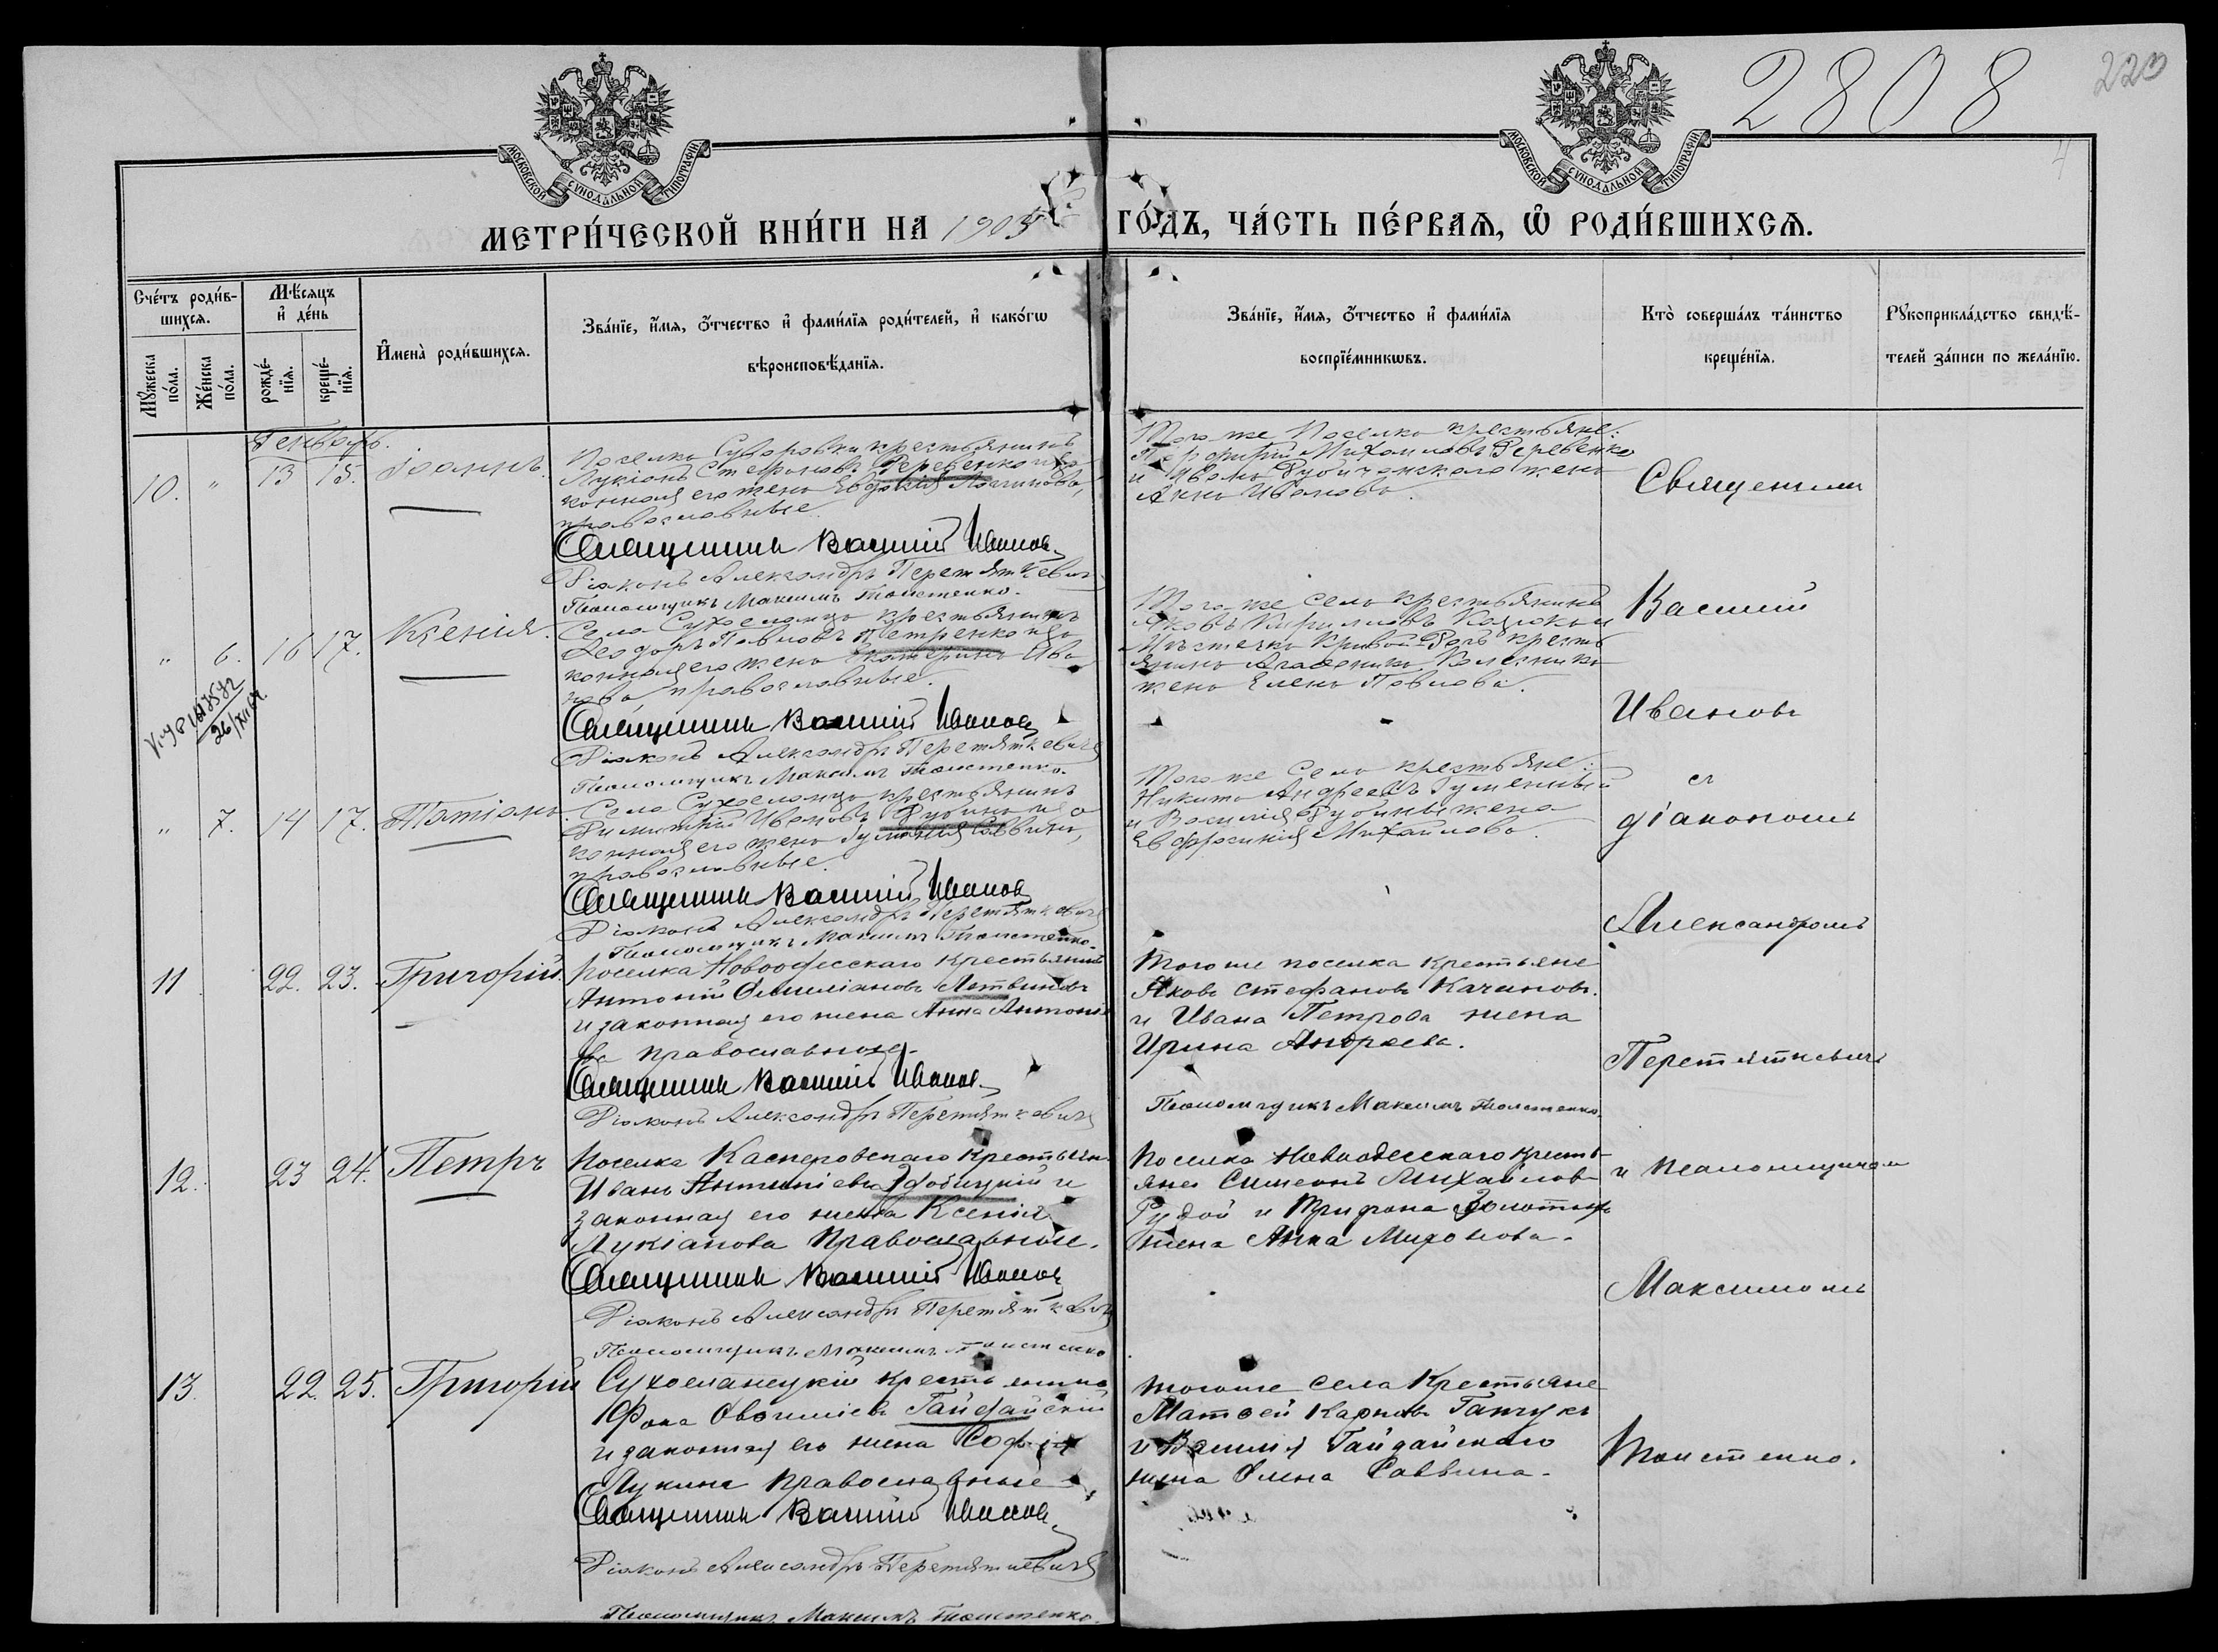 2808
223
4
МОСКОВСКОЙ СУНОДАЛЬНОЙ ТИПОГРАФІИ
МОСКОВСКОЙ СУНОДАЛЬНОЙ ТИПОГРАФІИ
МЕТРИ́ЧЕСКОЙ КНИ́ГИ НА 1905 ГО́ДЪ, ЧА́СТЬ ПЕ́РВАЯ, Ѡ҆ РОДИ́ВШИХСѦ.
Сче́тъ роди́в-
шихсѧ.
Мꙋ́жеска по́ла.
Же́нска по́ла.
Мѣ́сѧцъ
и҆ де́нь
рожде́-
нїѧ.
креще́-
нїѧ.
И҆мена̀ роди́вшихсѧ.
Зва́нїе, и҆́мѧ, ѻ҆́тчество и҆ фами́лїѧ роди́телей, и҆ како́гѡ
вѣроисповѣ́данїѧ.
Зва́нїе, и҆́мѧ, ѻ҆́тчество и҆ фами́лїѧ
воспрїе́мникѡвъ.
Кто̀ соверша́лъ та́инство
креще́нїѧ.
Рꙋкоприкла́дство свидѣ́-
телей за́писи по жела́нїю.
Генварь.
10. " 13 15. Іоаннъ.
Поселка Суворовки крестьянинъ
Лукіанъ Стефановъ Деревенко и за
конная его жена Евдокія Логинова,
православные.
Священникъ Василій Ивановъ
Діаконъ Александръ Перетяткевичъ
Псаломщикъ Максимъ Толстенко.
Того же поселка крестьяне:
Порфирій Михаиловъ Деревенко
и Ивана жена
Анна Иванова.
" 6. 16 17. Ксенія.
Села Сухоеланца крестьянинъ
Ѳеодоръ Павловъ Петренко и за
конная его жена Екатерина Ива
нова, православные.
Священникъ Василій Ивановъ
Діаконъ Александръ Перетяткевичъ
Псаломщикъ Максимъ Толстенко.
Того же села крестьянинъ
Яковъ Кириловъ и
Мѣстечка Кривой-Рогъ кресть
янина Колесника
жена Елена Павлова.
26/XII
" 7. 14 17. Татіана.
Села Сухоеланца крестьянинъ
Димитрій Ивановъ и за
конная его жена Гуліанія Саввина,
православные.
Священникъ Василій Ивановъ
Діаконъ Александръ Перетяткевичъ
Псаломщикъ Максимъ Толстенко.
Того же села крестьяне:
Никита Андреевъ Гуменный
и Василія жена
Евфросинія Михайлова.
11 22. 23. Григорій.
Поселка Новоодесскаго крестьянинъ
Антоній Емиліановъ Летвиновъ
и законная его жена Анна Антоніе
ва православные.
Священникъ Василій Ивановъ
Діаконъ Александръ Перетяткевичъ
Того же поселка крестьяне
Яковъ Стефановъ Качановъ.
и Ивана Петрова жена
Ирина Андреева.
Псаломщикъ Максимъ Толстенко.
12. 23 24. Петръ
Поселка Касперовскаго крестьян.
Иванъ Антоніевъ Здобицкій и
законная его жена Ксенія
Лукіанова православные.
Священникъ Василій Ивановъ
Діаконъ Александръ Перетяткевичъ
Псаломщикъ Максимъ Толстенко
Поселка Новоодесскаго кресть-
яне Симеонъ Михайловъ
Рудой и Трифона
жена Анна Миронова.
13. 22. 25. Григорій
Сухоеланецкій крестьянинъ
Фока Гайдайскій
и законная его жена Софія
Лукина православные
Священникъ Василій Ивановъ
Діаконъ Александръ Перетяткевичъ
Псаломщикъ Максимъ Толстенко.
того же села крестьяне
Матѳей Карповъ Ганчукъ
и Василія Гайдайскаго
жена Елена Саввина.
Священникъ
Василій
Ивановъ
съ
діакономъ
Александромъ
Перетяткевичъ
и псаломщикомъ
Максимомъ
Толстенко.